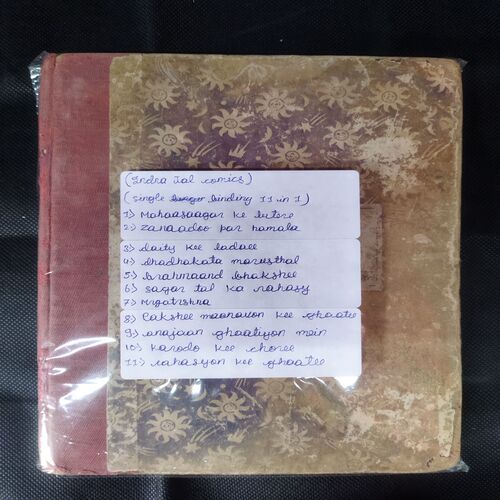 (Indra Jal comics)
(single binding 11 in 1)
1) Mahaasaagar ke lutere
2) zanaadoo par hamala
3) daity kee ladaee
4) dhadhakata marusthal
5) brahmaand bhakshee
6) sagar tal ka rahasy
7) Mrgatrshna
8) Pakshee maanavon kee ghaatee
9) anajaan ghaatiyon mein
10) karodo kee choree
11) rahasyon kee ghaatee